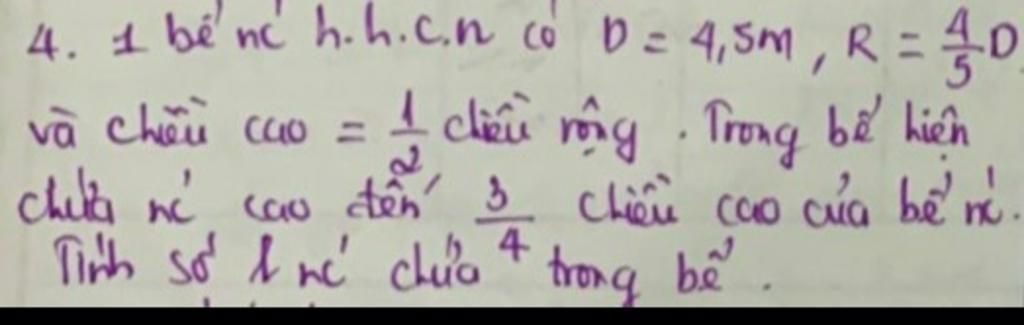 4. 1 bể nc' h.h.c.n có D = 4,5m, R = 4/5 D
và chiều cao = 1/2 chiều rộng. Trong bể hiện
chứa nc' cao đến 3/4 chiều cao của bể nc'.
Tính số l nc' chứa trong bể.